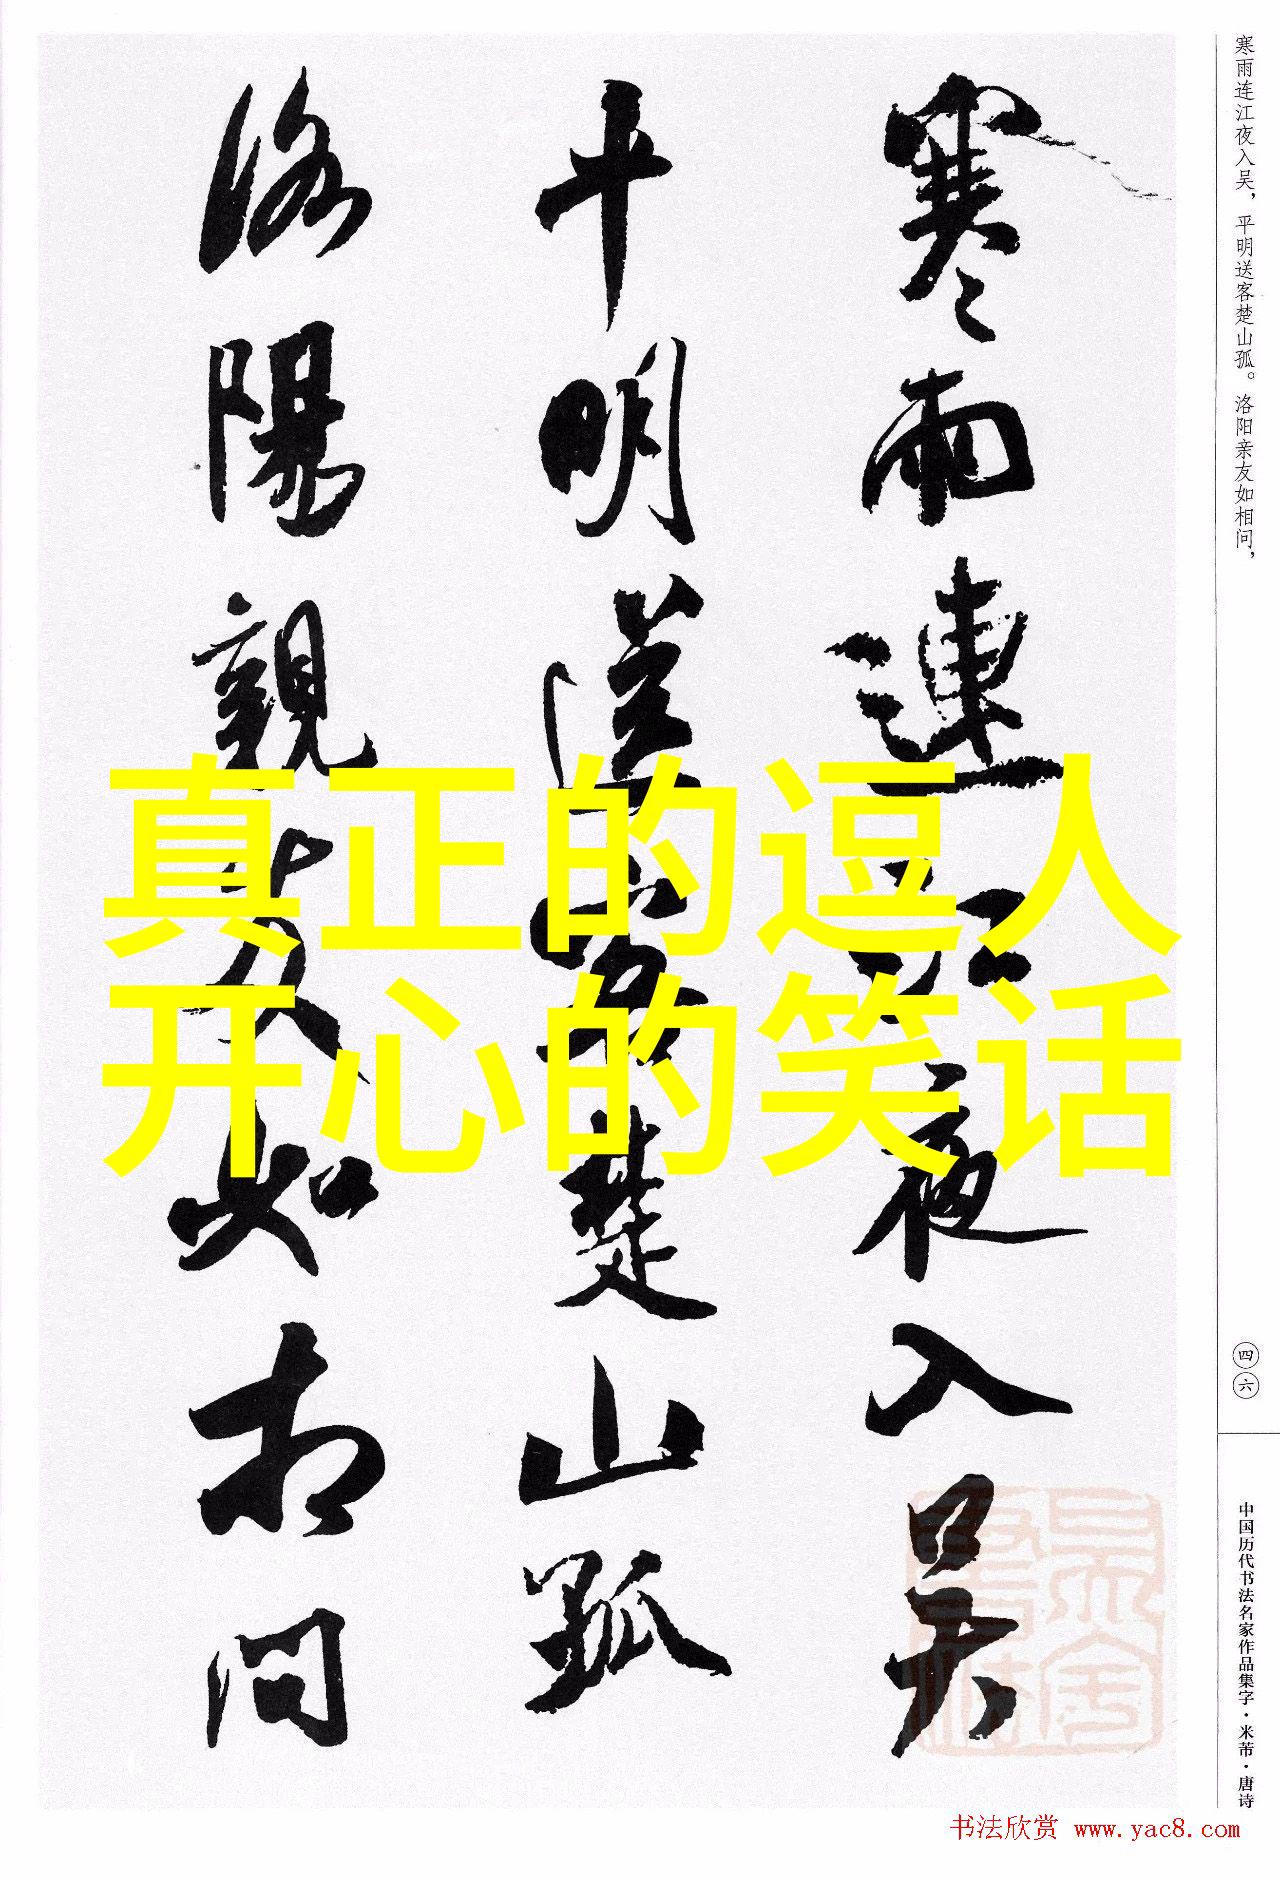 寒雨連江夜入吴
平明送客楚山孤
洛陽親友如相问
真正的逗人
开心的笑话
寒雨连江夜入吴，平明送客楚山孤。洛阳亲友如相问，
四六
中国历代书法名家作品集字·米芾·唐诗
书法欣赏 www.yac8.com